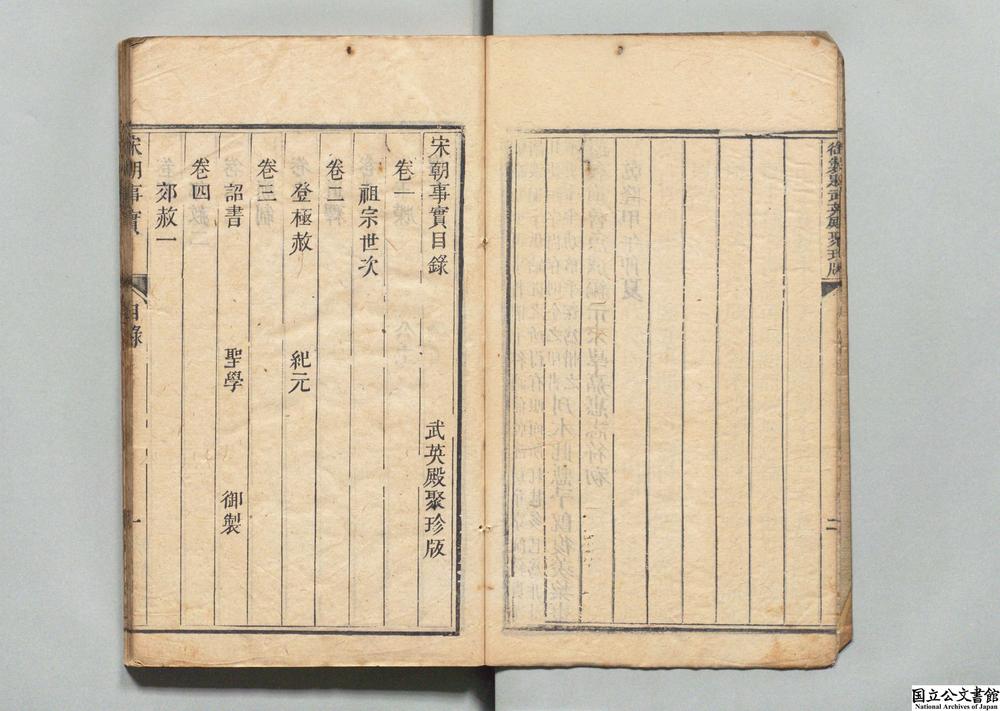 二
宋朝事實目錄 武英殿聚珍版
卷一
祖宗世次
卷二
登極赦 紀元
卷三
詔書 聖學 御製
卷四
郊赦一
宋朝事實 目錄 一
国立公文書館
National Archives of Japan